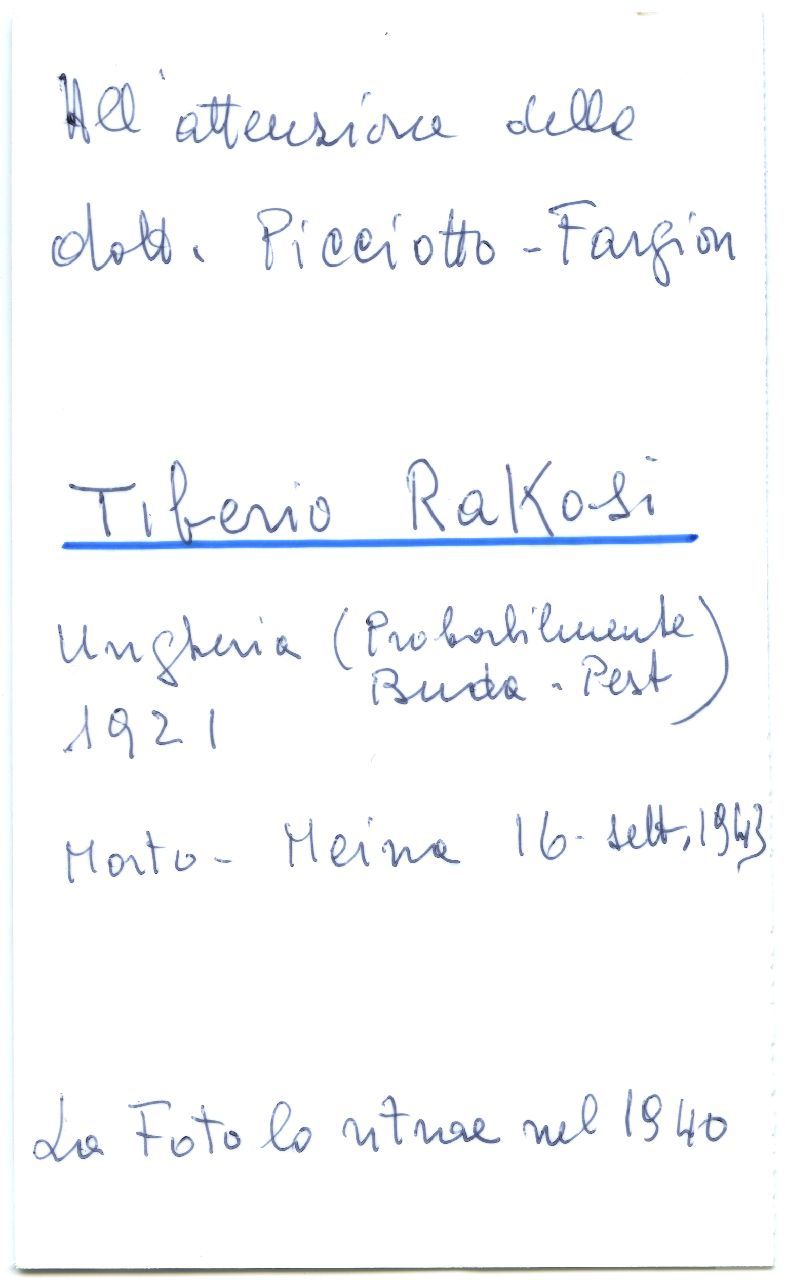 All'attenzione della
dott. Picciotto-Fargion
Tiberio RaKosi
Ungheria (Probabilmente
Buda-Pest)
1921
Morto - Meina 16-sett.1943
La Foto lo ritrae nel 1940